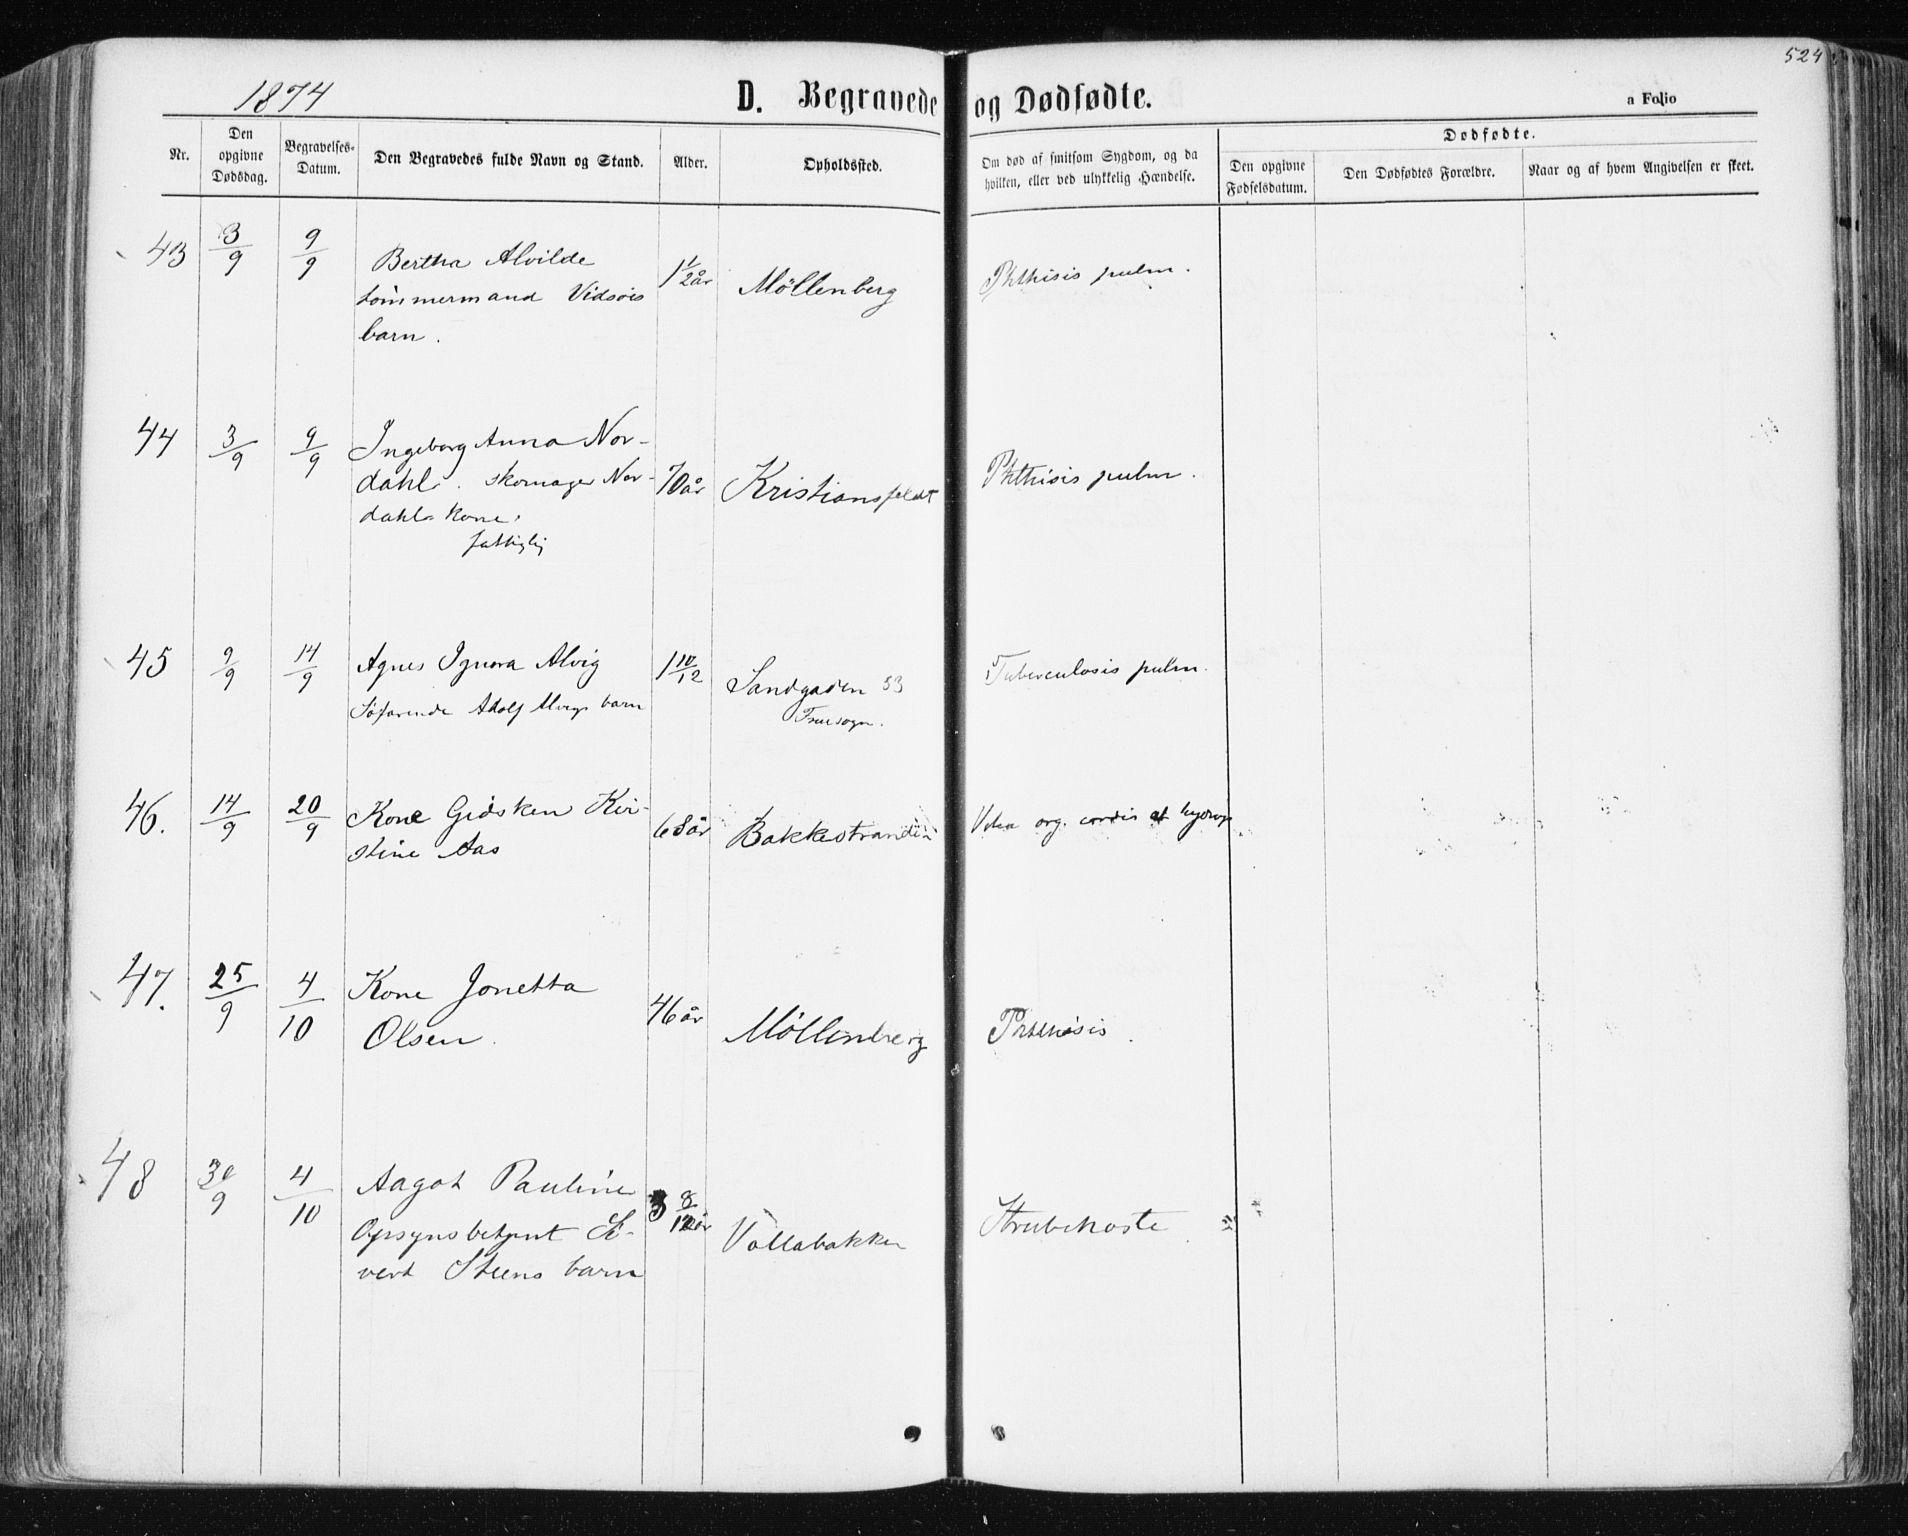 524
1874
D. Begravede og Dødfødte.
a Folio
Nr.
Den opgivne Dødsdag.
Begravelses-Datum.
Den Begravedes fulde Navn og Stand.
Alder.
Opholdssted.
Om død af smitsom Sygdom, og da hvilken, eller ved ulykkelig Hændelse.
Dødfødte.
Den opgivne Fødselsdatum.
Den Dødfødtes Forældre.
Naar og af hvem Angivelsen er skeet.
43 3/9 9/9 Bertha Alvilde 1 1/2 år Möllenberg Phthisis pulm.
tömmermand Vidsøis
barn.
44 3/9 9/9 Ingeborg Anna Nor- 70 år Kristiansfeldt Phthisis pulm.
dahl. skomager Nor-
dahls kone.
fattiglig
45 9/9 14/9 Agnes Ignora Alvig 1 10/12 Sandgaden 53 Tuberculosis pulm.
Söfarende Adolf Alvigs barn Fruesogn.
46. 14/9 20/9 Kone Gidsken Kir- 68 år Bakkestranden org. cordis et hydrops
stine Aas
47. 25/9 4/10 Kone Jonetta 46 år Möllenberg Phthisis.
Olsen.
48 30/9 4/10 Aagot Pauline 3 8/12 år Vollabakken Strubehoste
Opsynsbetjent Si-
vert Steens barn